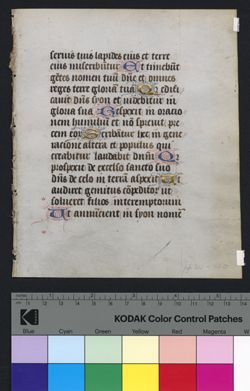 seruis tuis lapides eius et terre
eius miserebūtur Et timebūt
gētes nomen tuū dñe et omnes
reges terre gloriā tuā Qr edifi
cauit dñs syon et uidebitur in
gloria sua Respexit in oracio
nem humiliū et nō spreuit pre
cem eor Scribātur hec in gene
racione altera et populus qui
creabitur laudabit dñm Qr
prospexit de excelso sancto suo
dñs de celo in terrā aspexit Ut
audiret gemitus cōpeditor ut
solueret filios interemptorum
Ut annūcient in syon nomē
KODAK Color Control Patches
Blue Cyan Green Yellow Red Magenta
Kodak